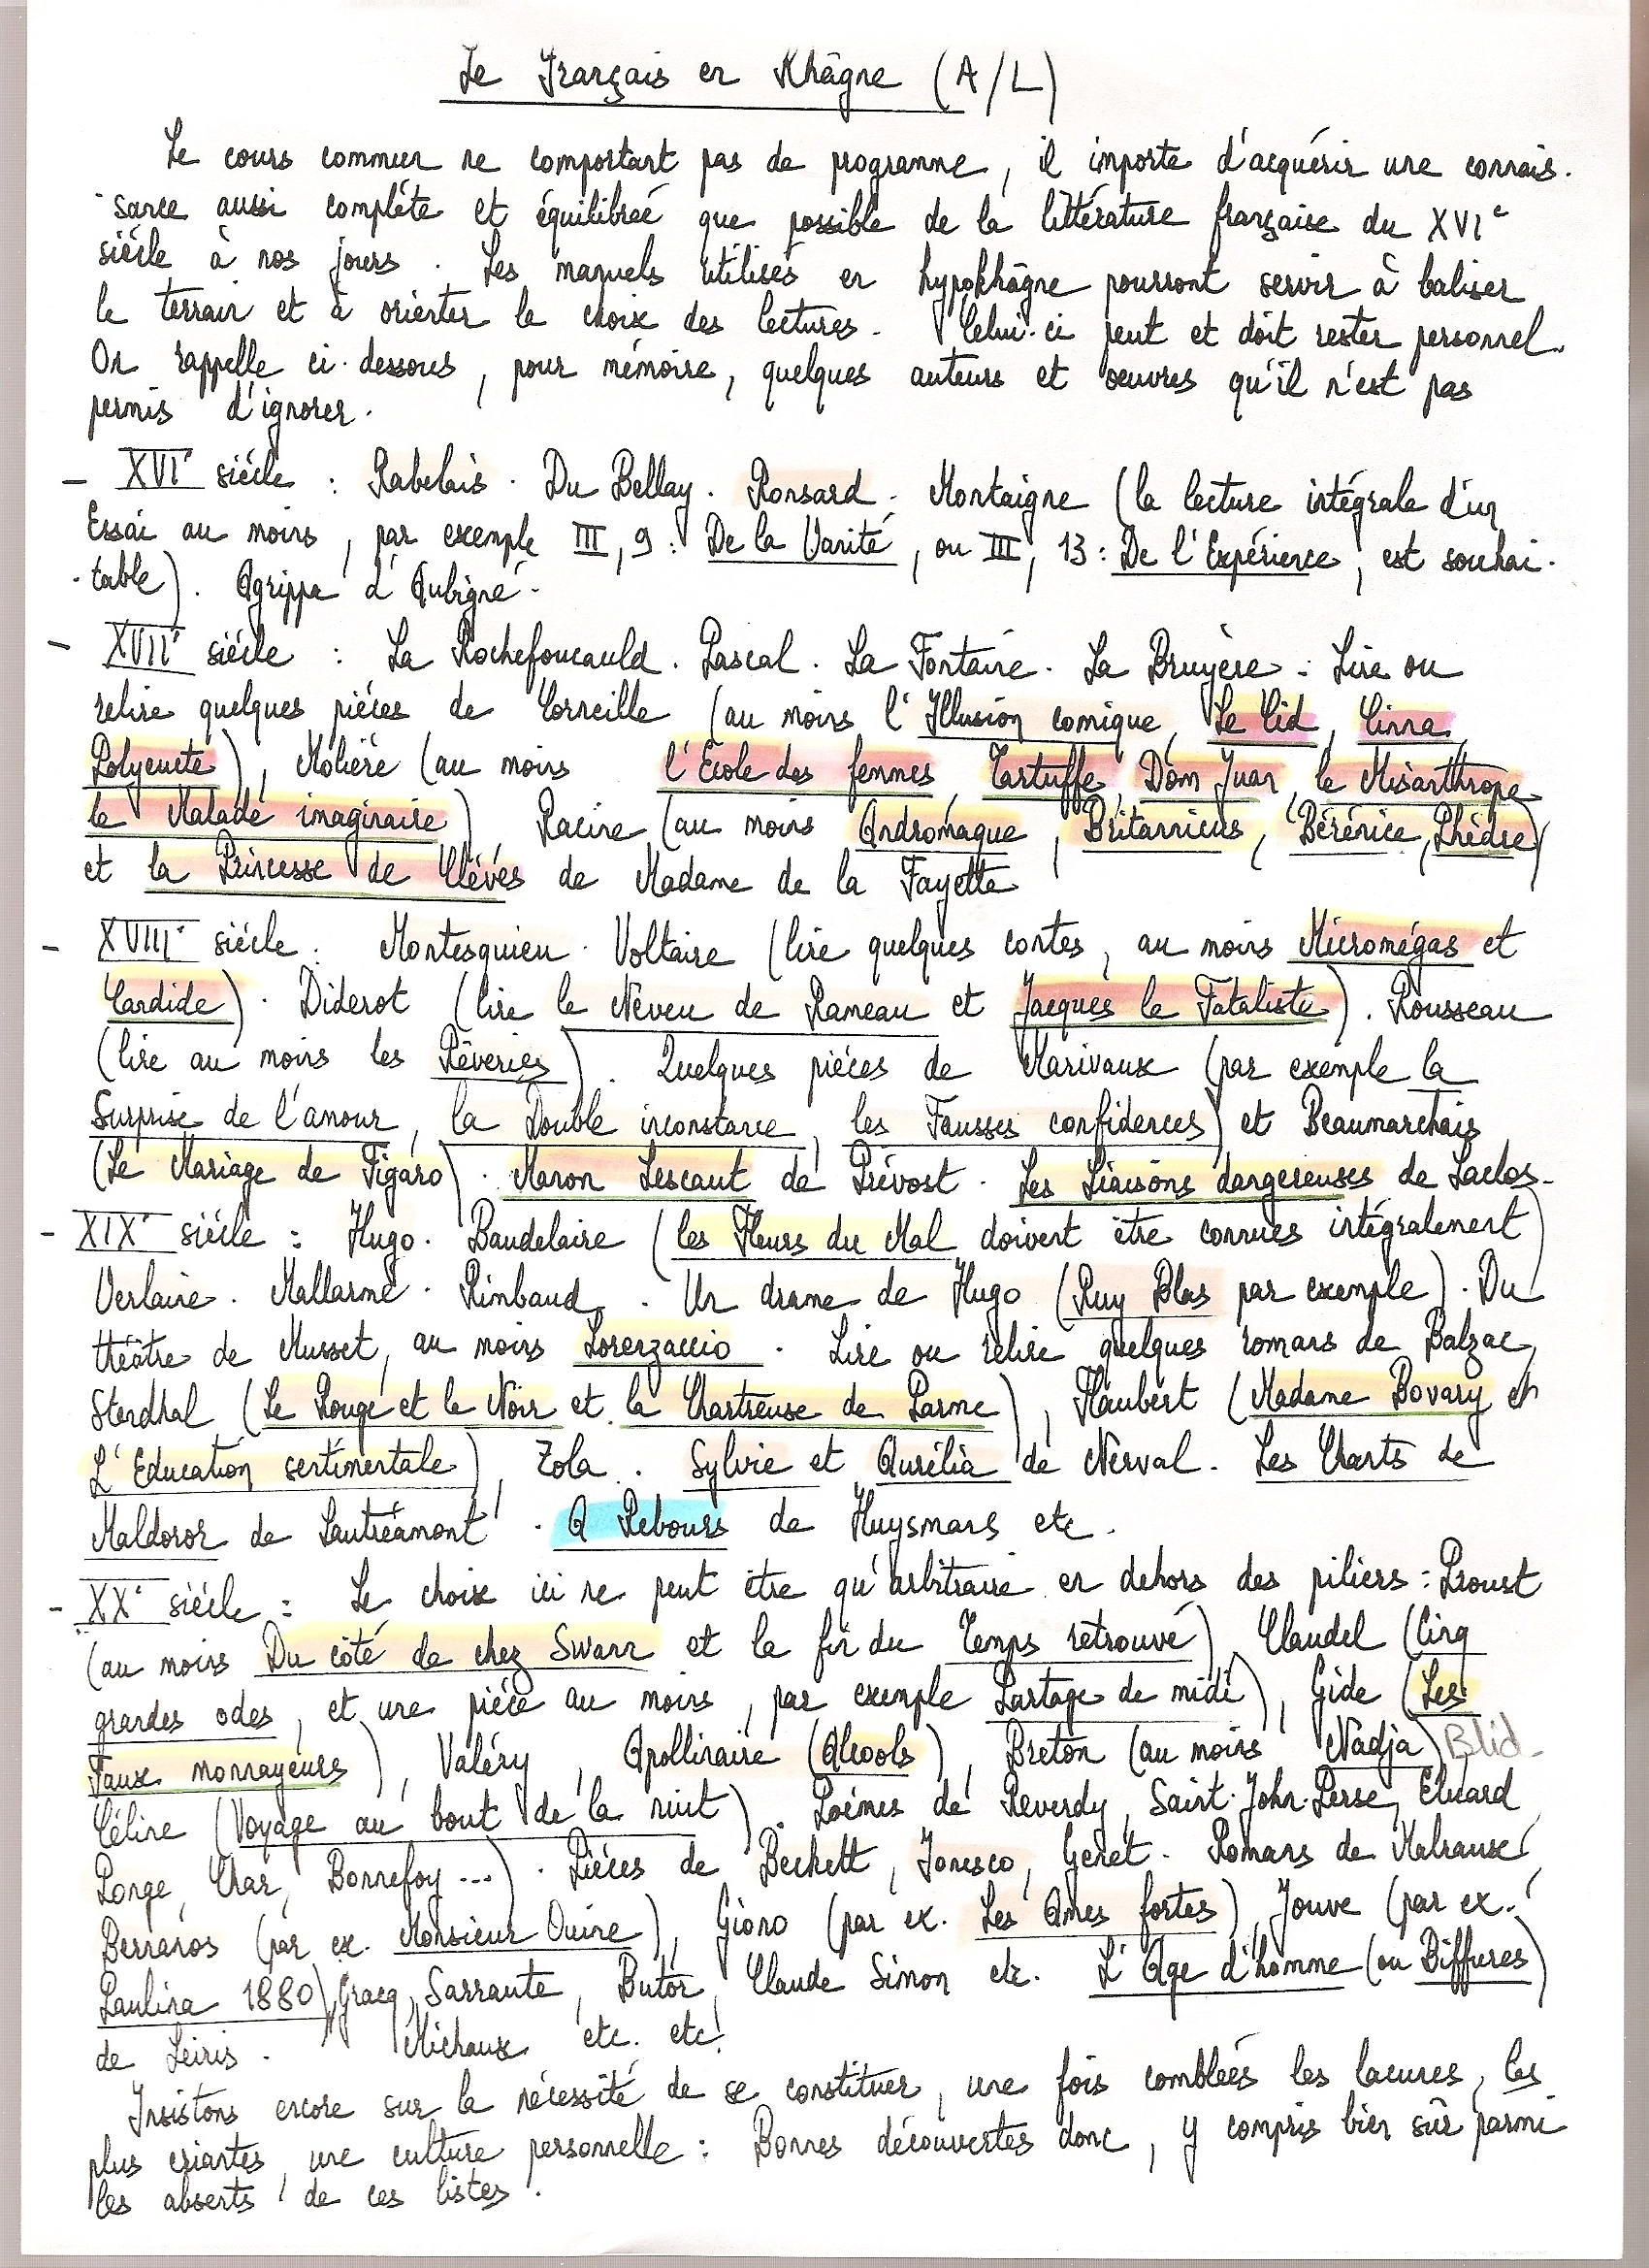 Le Français en Khâgne (A/L)
Le cours commun ne comportant pas de programme, il importe d'acquérir une connais-
-sance aussi complète et équilibrée que possible de la littérature française du XVIe
siècle à nos jours. Les manuels utilisés en hypokhâgne pourront servir à baliser
le terrain et à orienter le choix des lectures. Celui-ci peut et doit rester personnel.
On rappelle ci-dessous, pour mémoire, quelques auteurs et oeuvres qu'il n'est pas
permis d'ignorer.
- XVIe siècle : Rabelais. Du Bellay. Ronsard. Montaigne (la lecture intégrale d'un
Essai au moins, par exemple III, 9 : De la Vanité, ou III, 13 : De l'Expérience, est souhai-
-table). Agrippa d'Aubigné.
- XVIIe siècle : La Rochefoucauld. Pascal. La Fontaine. La Bruyère. Lire ou
relire quelques pièces de Corneille (au moins l'Illusion comique, Le Cid, Cinna,
Polyeucte), Molière (au moins l'Ecole des femmes, Tartuffe, Dom Juan, le Misanthrope
le Malade imaginaire) Racine (au moins Andromaque, Britannicus, Bérénice, Phèdre)
et la Princesse de Clèves de Madame de la Fayette
- XVIIIe siècle : Montesquieu. Voltaire (lire quelques contes, au moins Micromégas et
Candide). Diderot (lire le Neveu de Rameau et Jacques le Fataliste). Rousseau
(lire au moins les Rêveries). Quelques pièces de Marivaux (par exemple la
Surprise de l'amour, la Double inconstance, les Fausses confidences) et Beaumarchais
(Le Mariage de Figaro). Manon Lescaut de Prévost. Les Liaisons dangereuses de Laclos.
- XIXe siècle : Hugo. Baudelaire (les Fleurs du Mal doivent être connues intégralement)
Verlaine. Mallarmé. Rimbaud. Un drame de Hugo (Ruy Blas par exemple). Du
théâtre de Musset, au moins Lorenzaccio. Lire ou relire quelques romans de Balzac,
Stendhal (Le Rouge et le Noir et la Chartreuse de Parme), Flaubert (Madame Bovary et
L'Education sentimentale), Zola. Sylvie et Aurélia de Nerval. Les Chants de
Maldoror de Lautréamont. A Rebours de Huysmans etc.
- XXe siècle : Le choix ici ne peut être qu'arbitraire en dehors des piliers : Proust
(au moins Du côté de chez Swann et la fin du Temps retrouvé), Claudel (Cinq
grandes odes, et une pièce au moins, par exemple Partage de midi), Gide (Les
Faux monnayeurs), Valéry, Apollinaire (Alcools), Breton (au moins Nadja)
Céline (Voyage au bout de la nuit). Poèmes de Reverdy, Saint-John-Perse, Eluard,
Ponge, Char, Bonnefoy...). Pièces de Beckett, Ionesco, Genet. Romans de Malraux,
Bernanos (par ex. Monsieur Ouine), Giono (par ex. Les Ames fortes), Jouve (par ex.
Paulina 1880), Gracq, Sarraute, Butor, Claude Simon etc. L'Age d'homme (ou Biffures)
de Leiris. Michaux etc. etc.
Insistons encore sur la nécessité de se constituer, une fois comblées les lacunes, les
plus criantes, une culture personnelle : Bonnes découvertes donc, y compris bien sûr parmi
les absents de ces listes.